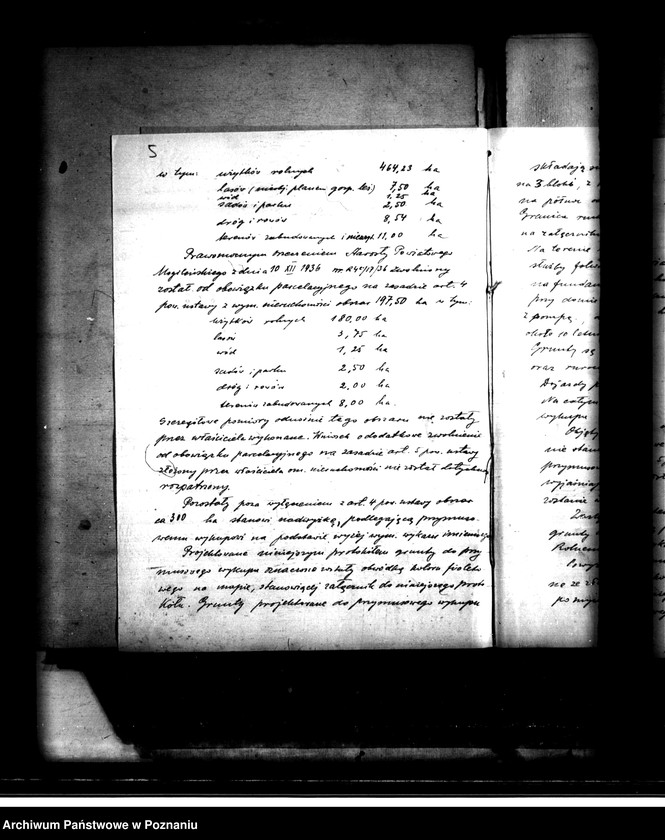 5
w tym: użytków rolnych 464,23 ha
lasów (nieobj. planem gosp. leś) 7,50 ha
wód 1,25 ha
sadów i parku 2,50 ha
dróg i rowów 8,54 ha
terenów zabudowanych i nieużyt. 11,00 ha
Prawomocnym orzeczeniem Starosty Powiatowego
Mogileńskiego z dnia 10 XII 1936 nr zwolniony
został od obowiązku parcelacyjnego na zasadzie art. 4
pow. ustawy z wym. nieruchomości obszar 197,50 ha w tym:
użytków rolnych 180,00 ha
lasów 3,75 ha
wód 1,25 ha
sadów i parku 2,50 ha
dróg i rowów 2,00 ha
terenów zabudowanych 8,00 ha.
Szczegółowe pomiary odnośnie tego obszaru nie zostały
przez właściciela wykonane. Wniosek o dodatkowe zwolnienie
od obowiązku parcelacyjnego na zasadzie art. 5 pow. ustawy
złożony przez właściciela om. nieruchomości nie został dotychczas
rozpatrzony.
Pozostały poza wyłączeniem z art. 4 pow. ustawy obszar
ca 300 ha stanowi nadwyżkę, podlegającą przymuso-
wemu wykupowi na podstawie wyżej wym. wykazu imiennego.
Projektowane niniejszym protokółem grunty do przy-
musowego wykupu oznaczone zostały obwódką koloru fioleto-
wego na mapie, stanowiącej załącznik do niniejszego proto-
kółu. Grunty projektowane do przymusowego wykupu
składają
na 3 bloki, z
na północ
Granica
na załączniku
Na terenie
służby
na
przy
z pompą,
około
Grunty są
oraz
Dojazdy
Na
wykupu
nie
zostanie
grunty
na
Archiwum Państwowe w Poznaniu